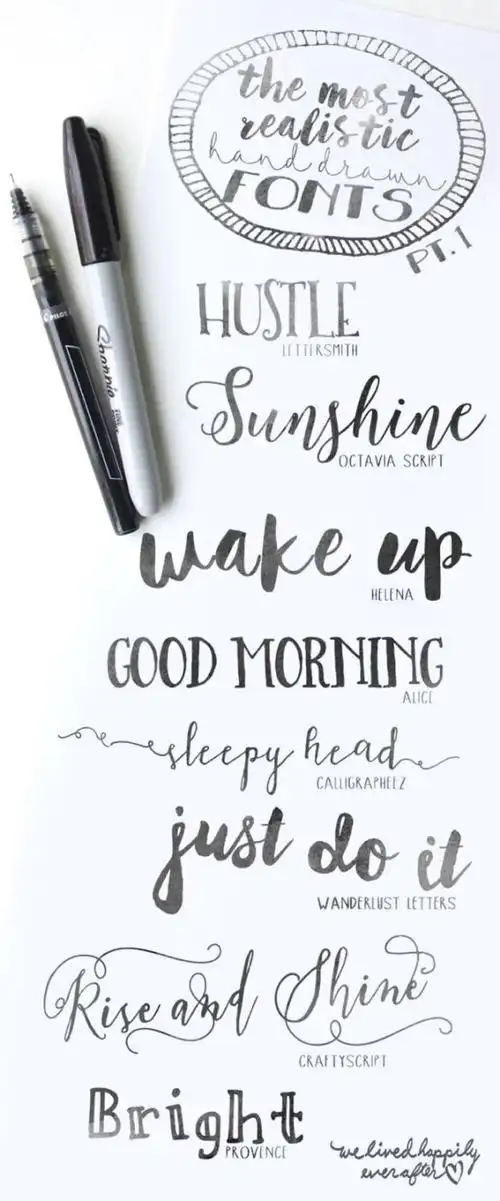 the most
realistic
hand drawn
FONTS
PT. 1
HUSTLE
LETTERSMITH
Sunshine
OCTAVIA SCRIPT
wake up
HELENA
GOOD MORNING
ALICE
sleepy head
CALLIGRAPHEEZ
just do it
WANDERLUST LETTERS
Rise and Shine
CRAFTYSCRIPT
Bright
PROVENCE
we lived happily
ever after
PILOT
Sharpie
FINE